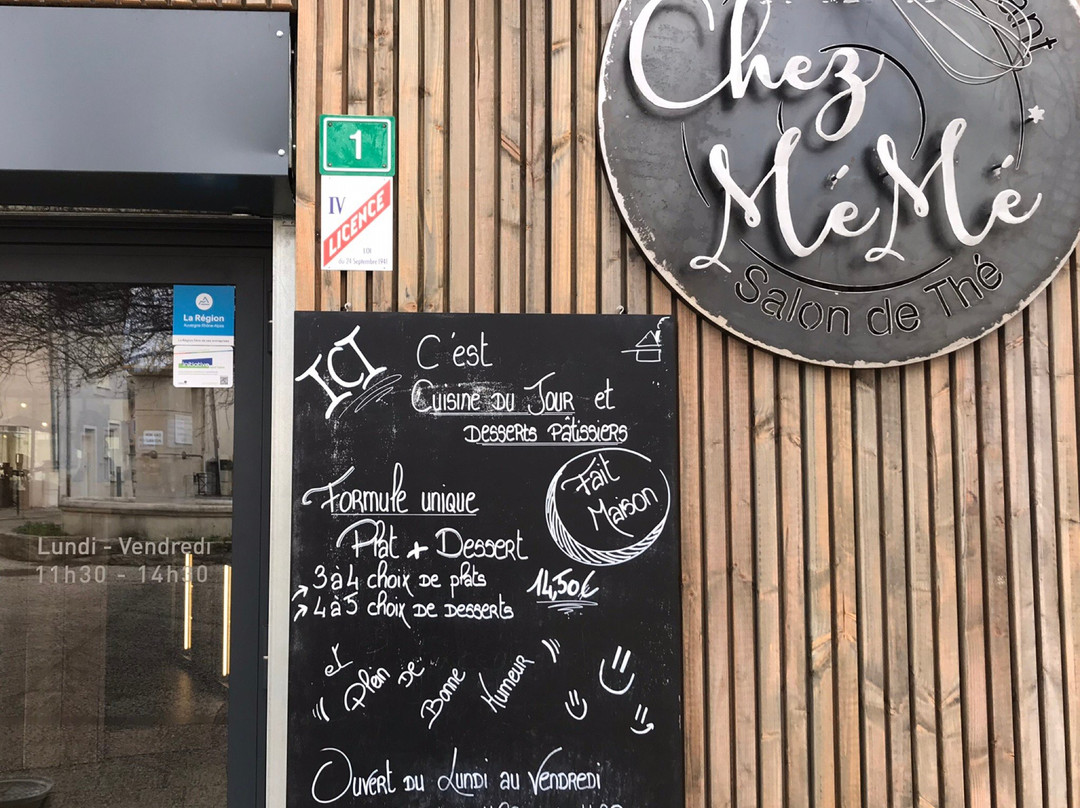 Chez
MéMé
Salon de Thé
1
IV
LICENCE
du 24 Septembre 1941
La Région
Auvergne-Rhône-Alpes
initiative
Lundi - Vendredi
11h30 - 14h30
ICI
C'est
Cuisine du Jour et
Desserts Pâtissiers
Fait
Maison
Formule unique
Plat + Dessert
3 à 4 choix de plats 14,50€
4 à 5 choix de desserts
et
Plein de
Bonne
Humeur
Ouvert du Lundi au Vendredi